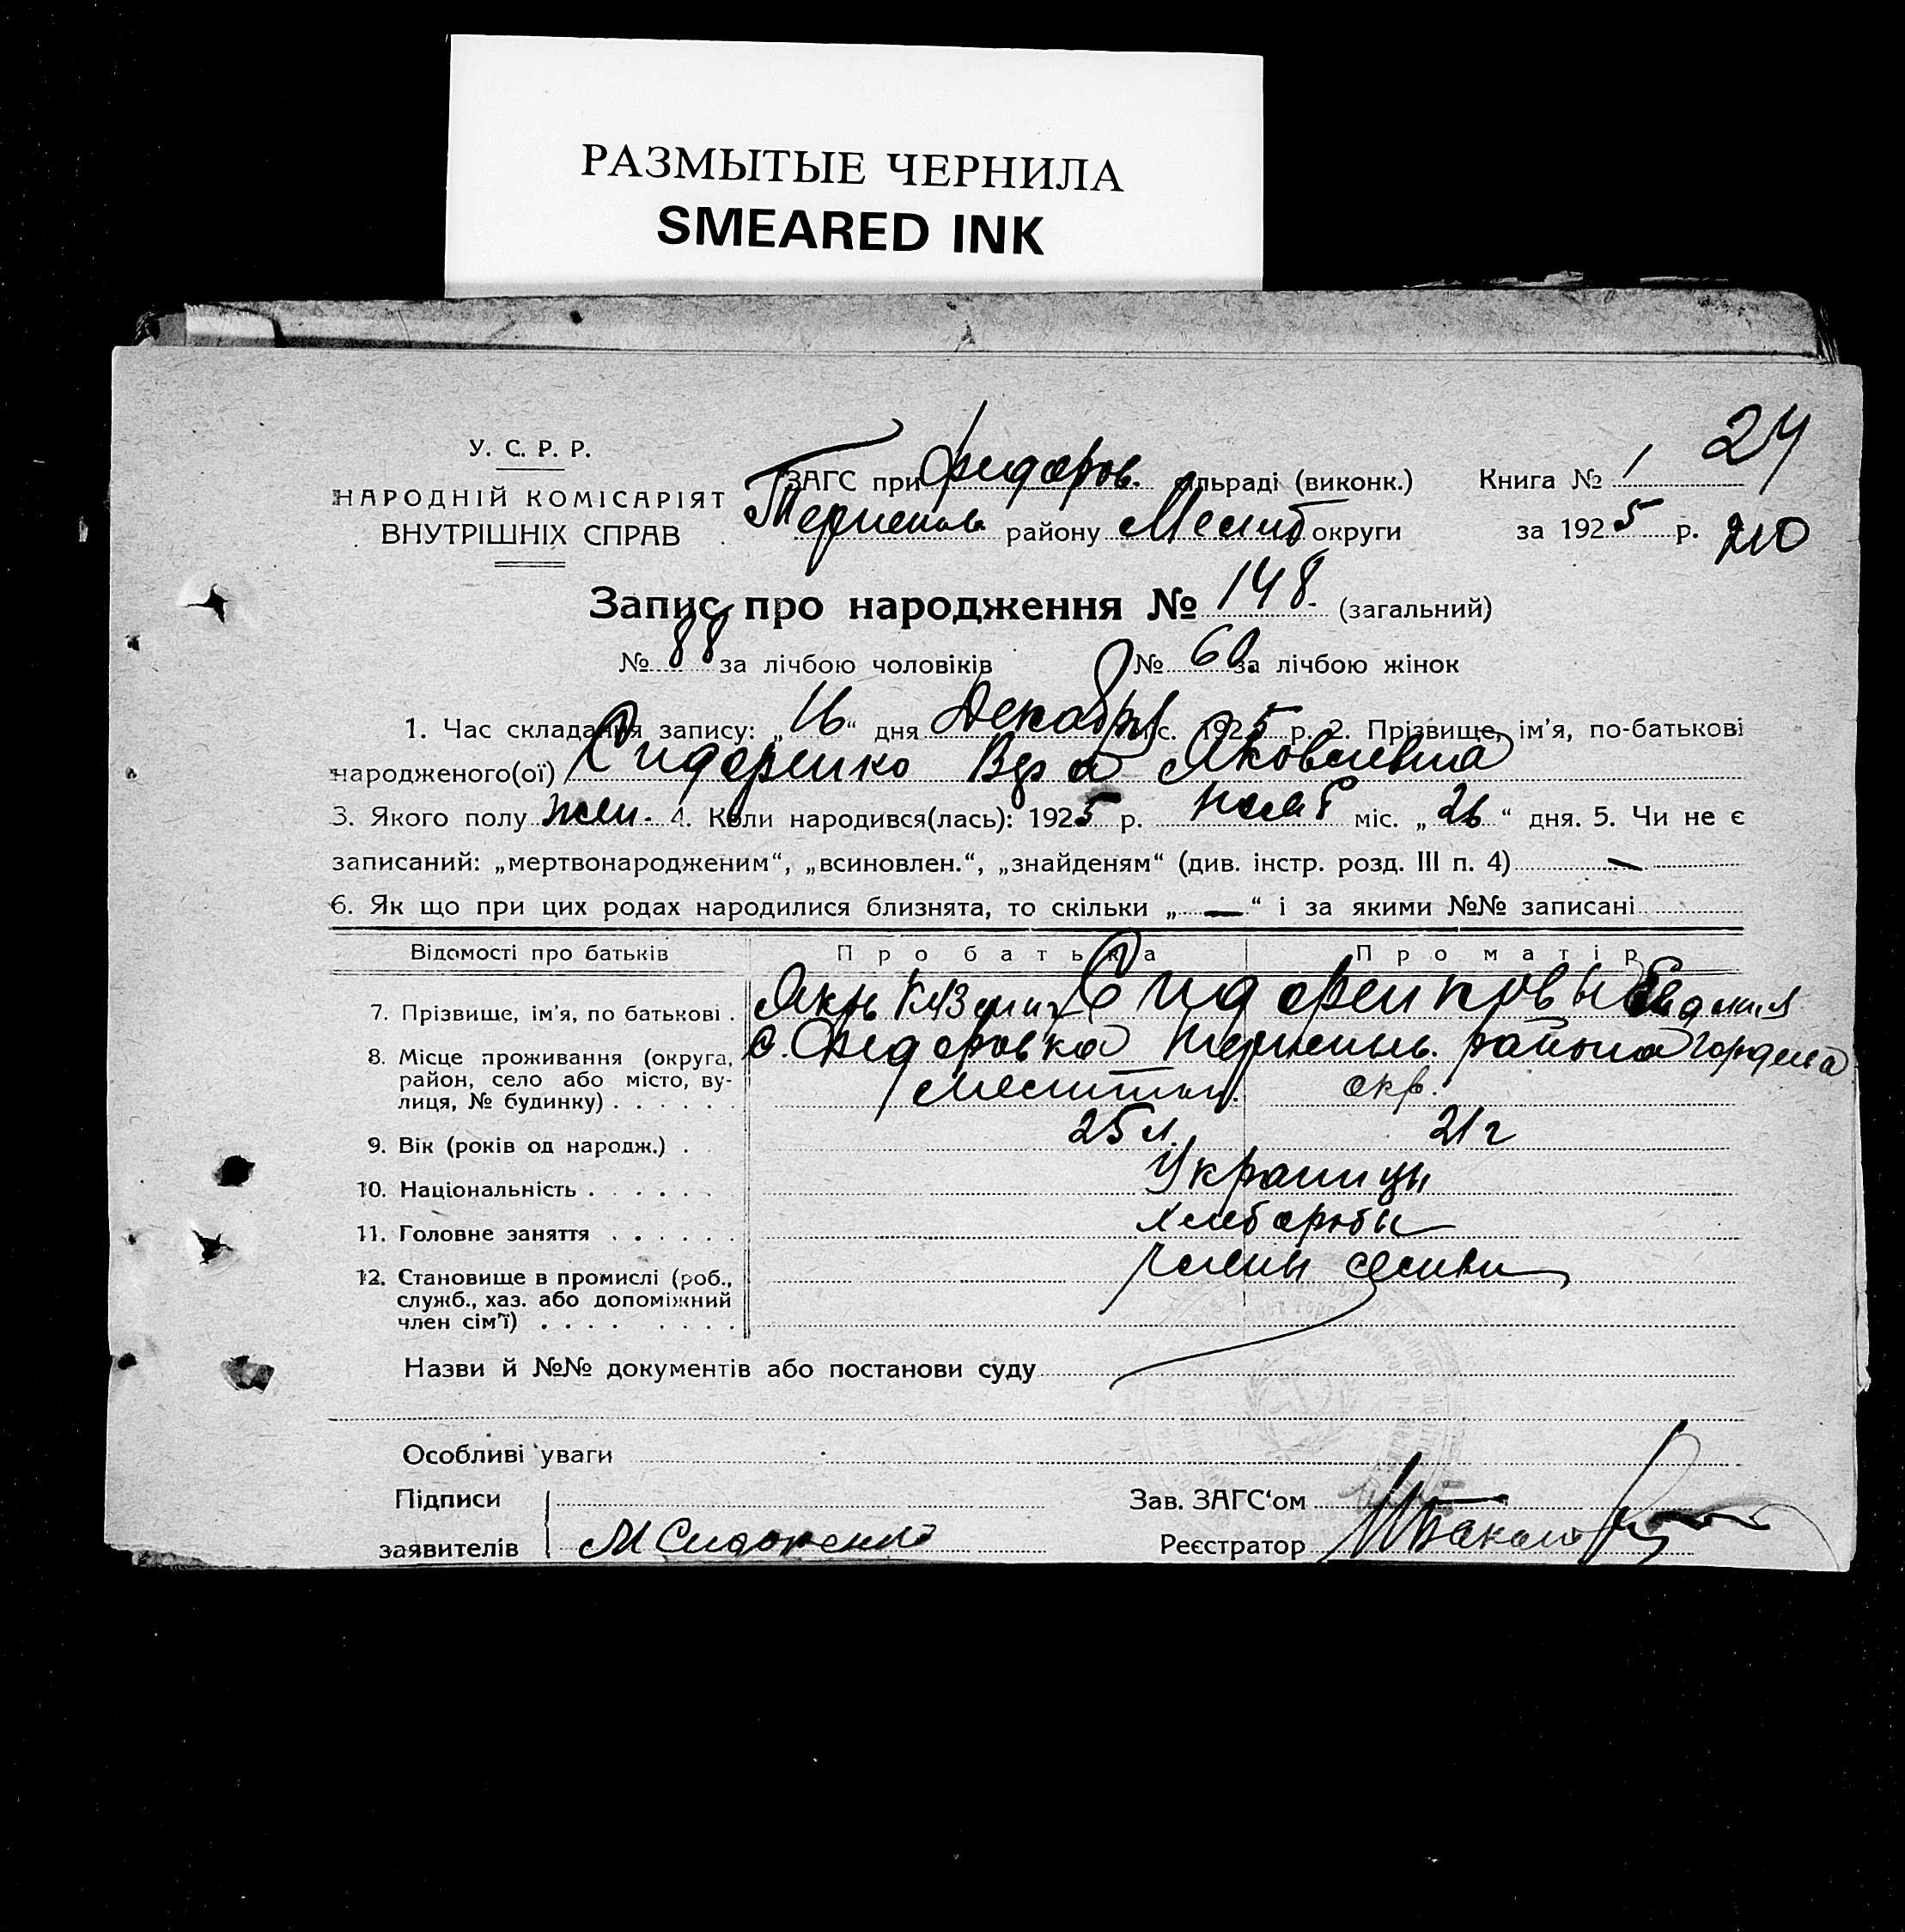 РАЗМЫТЫЕ ЧЕРНИЛА
SMEARED INK
24
У. С. Р. Р.
НАРОДНІЙ КОМІСАРІЯТ
ВНУТРІШНІХ СПРАВ
ЗАГС при Федоров. сільраді (виконк.)
району округи
Книга № 1
за 1925 р.
210
Запис про народження № 148. (загальний)
№ 88 за лічбою чоловіків № 60 за лічбою жінок
1. Час складання запису: „16“ дня Декабря міс. 1925 р. 2. Прізвище, ім'я, по-батькові
народженого(ої) Сидоренко Вера Яковлевна
3. Якого полу жен. 4. Коли народився(лась): 1925 р. нояб міс. „26“ дня. 5. Чи не є
записаний: „мертвонародженим“, „всиновлен.“, „знайденям“ (див. інстр. розд. III п. 4) —
6. Як що при цих родах народилися близнята, то скільки „—“ і за якими №№ записані
Відомості про батьків Про батька Про матір
7. Прізвище, ім'я, по батькові . Яков Сидоренковы
8. Місце проживання (округа, район, село або місто, вулиця, № будинку) . . . . . . с. Федоровка района
окр.
9. Вік (років од народж.) . 25 л. 21 г
10. Національність . . . . . . Украинцы
11. Головне заняття . . . . . . хлеборобы
12. Становище в промислі (роб.,
служб., хаз. або допоміжний
член сім'ї) . . . . . . . . члены семьи
Назви й №№ документів або постанови суду
Особливі уваги
Підписи
заявителів М Сидоренко
Зав. ЗАГС'ом
Реєстратор